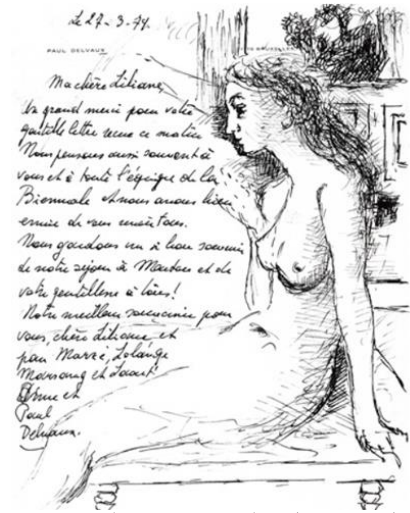 Le 27-3-74.
PAUL DELVAUX
BRUXELLES
Ma chère Liliane,
Un grand merci pour votre
gentille lettre reçue ce matin
Nous pensons aussi souvent à
vous et à toute l'équipe de la
Biennale et nous avons bien
envie de vous revoir tous.
Nous gardons un si bon souvenir
de notre séjour à Menton et de
votre gentillesse à tous!
Notre meilleur souvenir pour
vous, chère Liliane et
pour Solange
et
et
Paul
Delvaux.